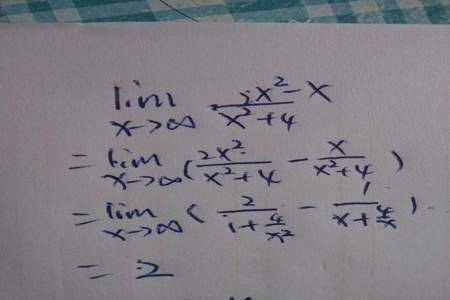 lim x→∞ (2x²-x)/(x²+4)
= lim x→∞ (2x²/(x²+4) - x/(x²+4))
= lim x→∞ (2/(1+4/x²) - 1/(x+4/x))
= 2